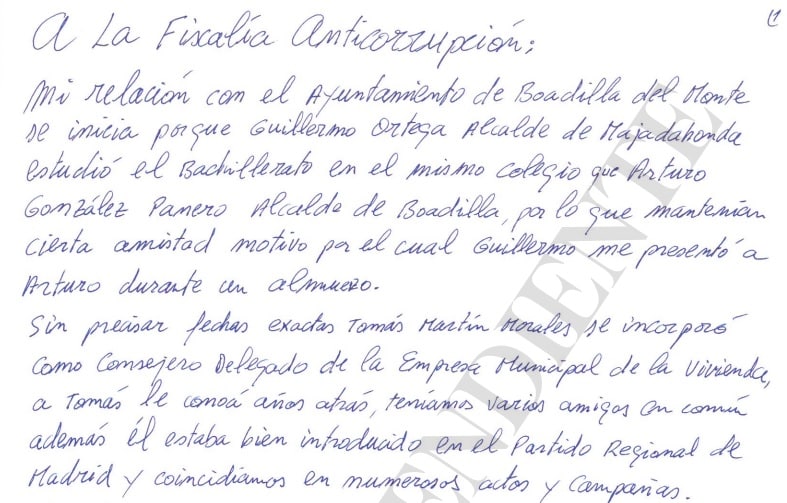 1
A La Fiscalía Anticorrupción:
Mi relación con el Ayuntamiento de Boadilla del Monte
se inicia porque Guillermo Ortega Alcalde de Majadahonda
estudió el Bachillerato en el mismo colegio que Arturo
González Panero Alcalde de Boadilla, por lo que mantenían
cierta amistad motivo por el cual Guillermo me presentó a
Arturo durante un almuerzo.
Sin precisar fechas exactas Tomás Martín Morales se incorporó
como Consejero Delegado de la Empresa Municipal de la Vivienda,
a Tomás le conocí años atrás, teníamos varios amigos en común
además él estaba bien introducido en el Partido Regional de
Madrid y coincidíamos en numerosos actos y Campañas.
ENDIENTE